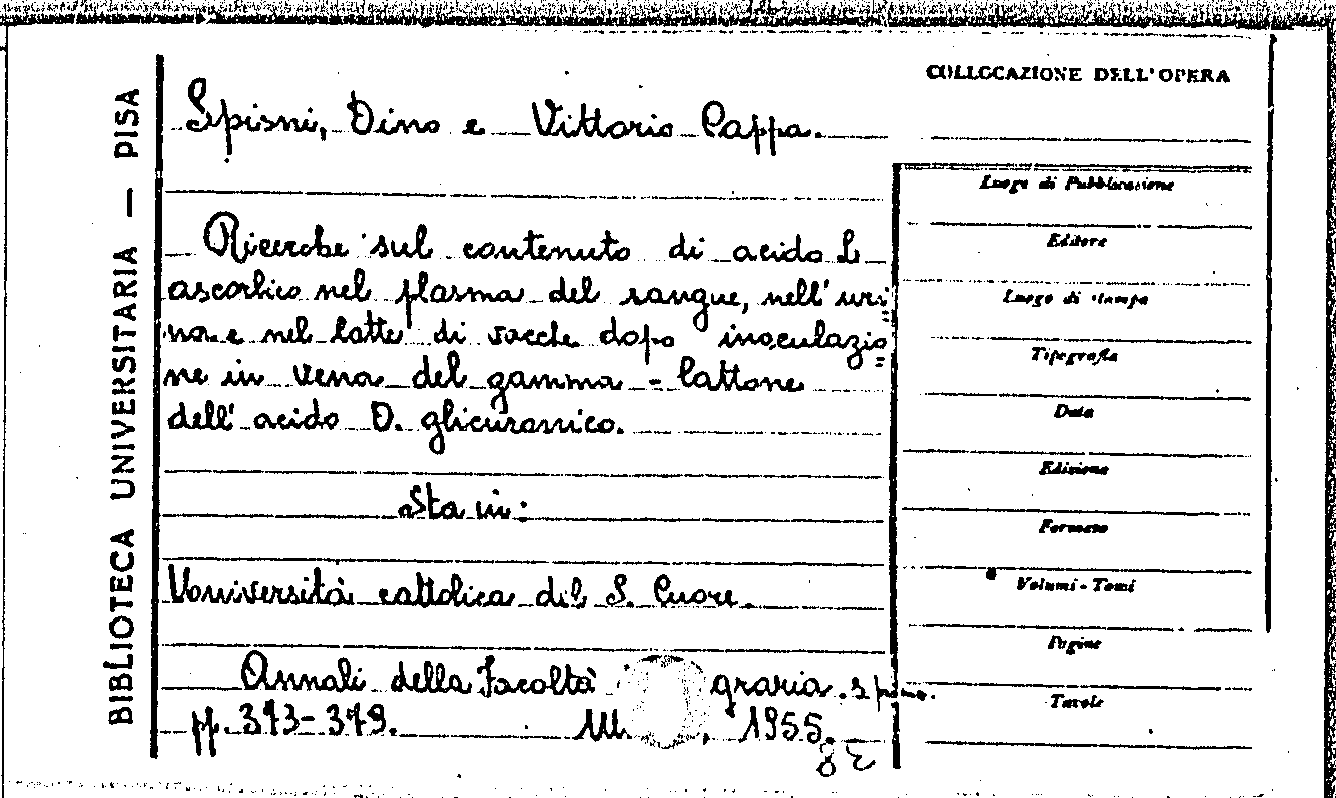 COLLOCAZIONE DELL'OPERA
BIBLIOTECA UNIVERSITARIA — PISA
Spisni, Dino e Vittorio Pappa.
Ricerche sul contenuto di acido L
ascorbico nel plasma del sangue, nell'uri=
na e nel latte di vacche dopo inoculazio=
ne in vena del gamma-lattone
dell'acido D. glicuronico.
Sta in:
Università cattolica del S. Cuore.
Annali della Facoltà graria.
pp. 373-379. 1955.
Luogo di Pubblicazione
Editore
Luogo di stampa
Tipografia
Data
Edizione
Formato
Volumi - Tomi
Pagine
Tavole